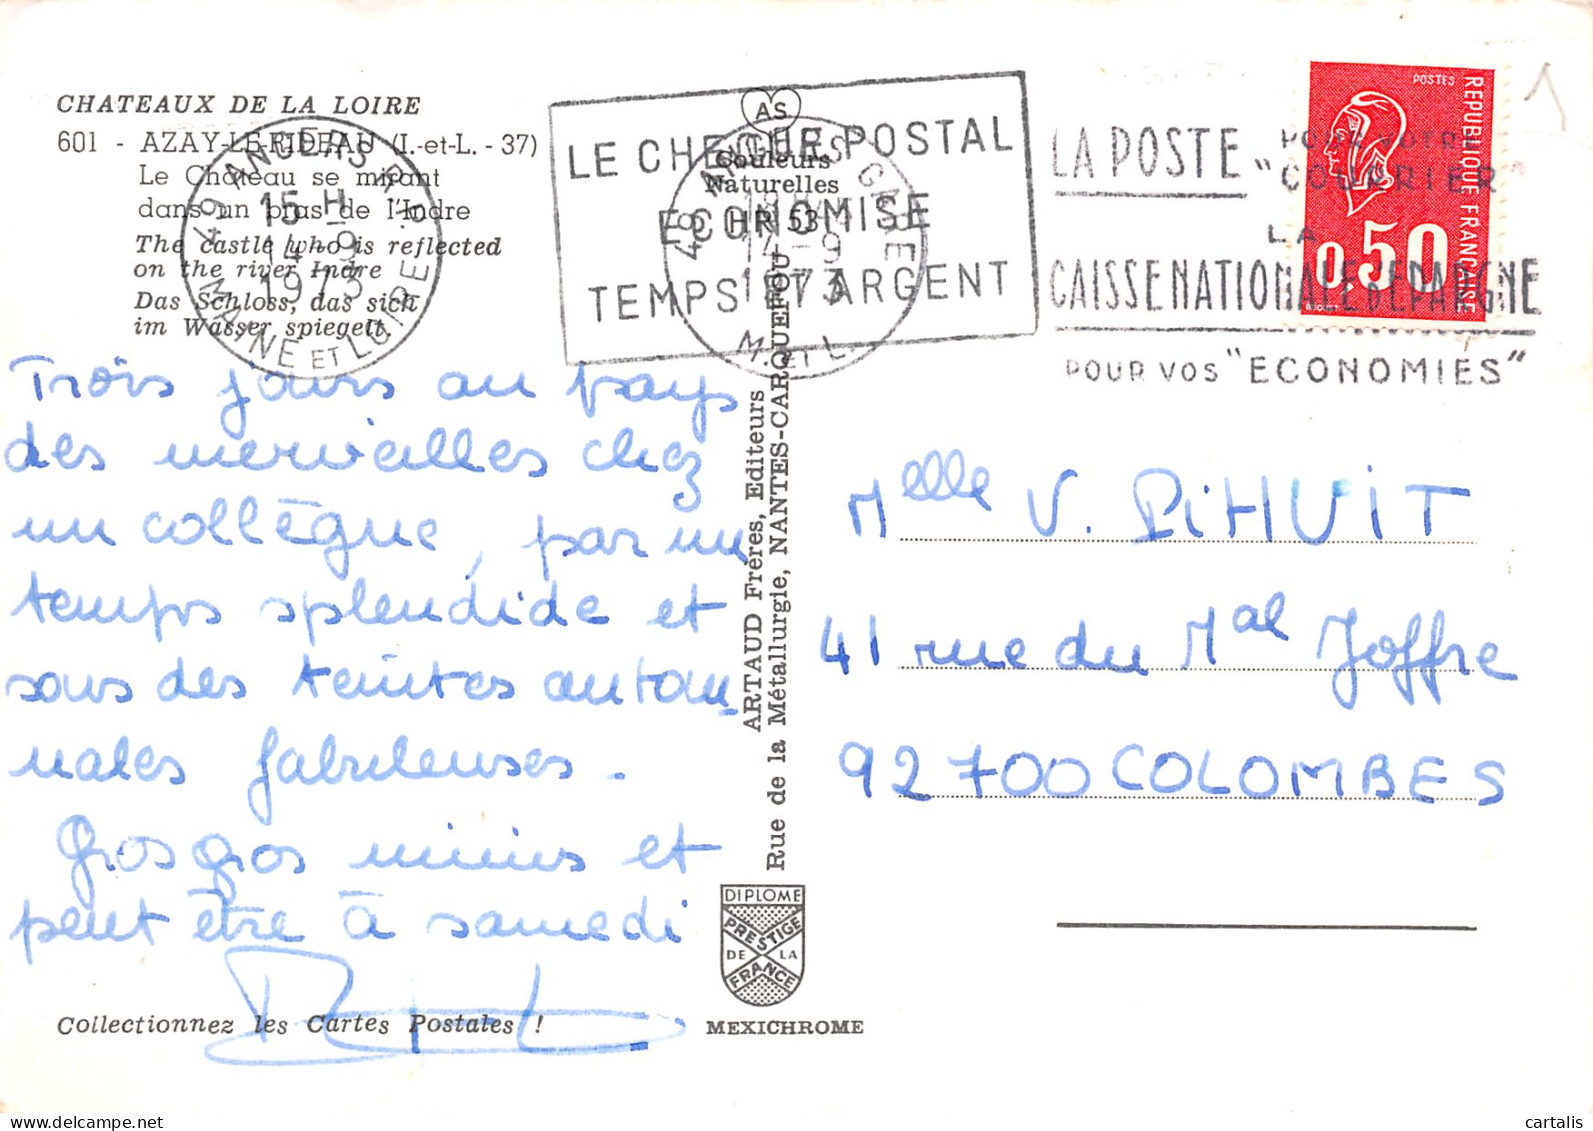 CHATEAUX DE LA LOIRE
601 - AZAY-LE-RIDEAU (I.-et-L. - 37)
Le Château se mirant
dans un bras de l'Indre
The castle who is reflected
on the river Indre
Das Schloss, das sich
im Wasser spiegelt.
49 ANGERS R.P.
15 H
14-9
1973
MAINE ET LOIRE
AS
Couleurs
Naturelles
LE CHEQUE POSTAL
ECONOMISE
TEMPS ET ARGENT
49 ANGERS GARE
14-9
1973
M. ET L.
LA POSTE POUR VOTRE
"COURRIER"
LA
CAISSE NATIONALE D'EPARGNE
POUR VOS "ECONOMIES"
POSTES
REPUBLIQUE FRANCAISE
0,50
Trois jours au pays
des merveilles chez
un collègue, par un
temps splendide et
sous des teintes autom-
nales fabuleuses.
Gros gros mimis et
peut être à samedi
Melle V. PiHUiT
41 rue du Mal Joffre
92700 COLOMBES
ARTAUD Frères, Editeurs
Rue de la Métallurgie, NANTES-CARQUEFOU
DIPLOME
PRESTIGE
DE LA
FRANCE
MEXICHROME
Collectionnez les Cartes Postales !
cartalis
delcampe.net